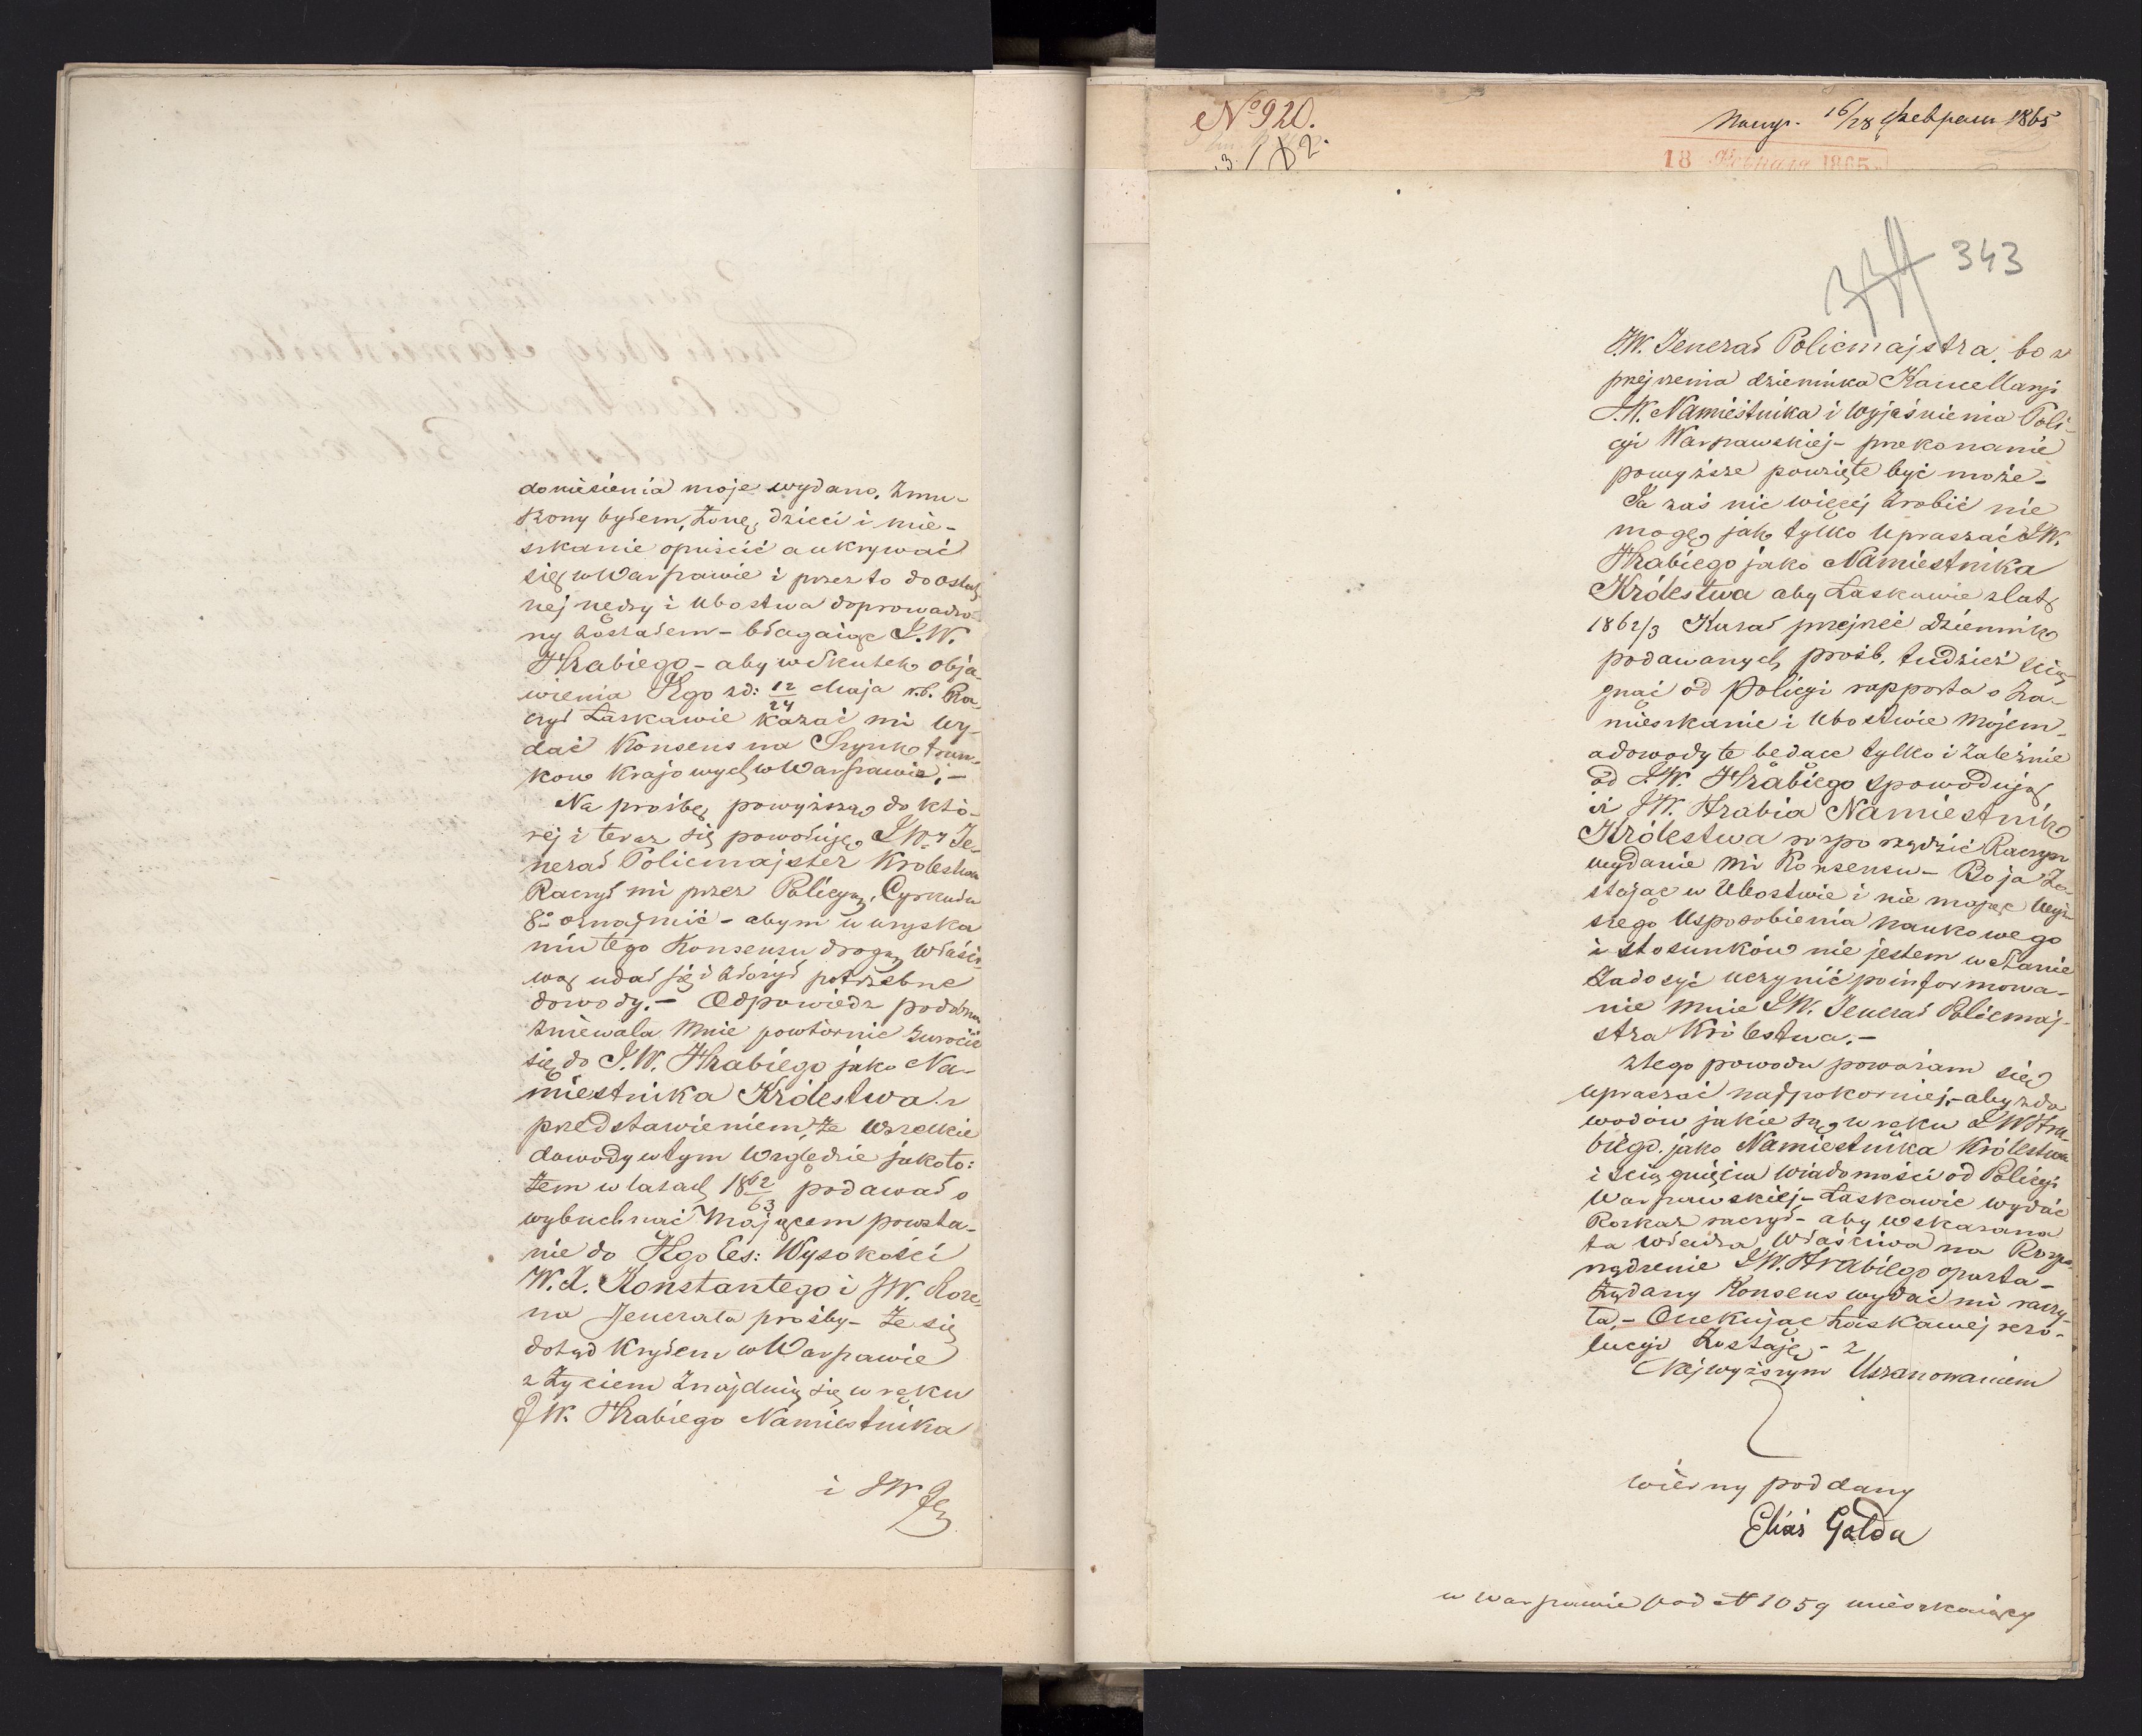 doniesienia moje wydano, zmu-
szony byłem, żonę, dzieci i mie-
szkanie opuścić a ukrywać
się w Warszawie i przez to do ostat-
nej nędzy i ubostwa doprowadzo-
ny zostałem – błagając J.W.
Hrabiego – aby w skutek obja-
wienia Jego zd: 12/24 Maja r.b. Ra-
czył Łaskawie kazać mi wy-
dać Konsens na Szynk trun-
kow krajowych w Warszawie. –
Na prośbę powyższą do któ-
rej i teraz się powołuję, J W. Je-
nerał Policmajster Krolestwa
Raczył mi przez Policyą Cyrkułu
8o oznajmić – abym w uzyska
niu tego Konsensu drogą właści-
wą udał się i złożył potrzebne
dowody. – Odpowiedz podobna
zniewala mnie powtórnie zwrócić
się do J.W. Hrabiego jako Na-
miestnika Królestwa z
przedstawieniem, że wszelkie
dowody w tym względzie jakoto:
żem w latach 1862/63 podawał o
wybuchnąć mającem powsta-
nie do Jego Ces: Wysokości
W. X. Konstantego i JW. Kore-
na Jenerała prośby – że się
dotąd kryłem w Warszawie
z życiem znajduią się w ręku
JW. Hrabiego Namiestnika
i JW Je
No 920.
16/28 Февраля 1865
18 1865
343
J.W. Jenerał Policmajstra, bo z
przejrzenia dziennika Kancellaryi
J.W. Namiestnika i wyjaśnienia Poli-
cyi Warszawskiej – przekonanie
powyższe powzięte być może –
Ja zaś nic więcéj zrobić nie
mogę, jak tylko upraszać JW.
Hrabiego jako Namiestnika
Królestwa aby Łaskawie z lat
1862/3 Kazał przejrzéć dziennik
podawanych prośb, tudzież scią
gnąć od Policyi rapporta o za-
mieszkanie i ubóstwie mojem –
a dowody te będące tylko i zależnie
od J.W. Hrabiego spowodują
iż JW. Hrabia Namiestnik
Królestwa rozporządzić Raczy
wydanie mi Konsensu – Bo ja zo-
stając w Ubostwie i nie mając wyż-
szego usposobienia naukowego
i stosunków nie jestem w stanie
zadosyć uczynić poinformowa-
nie mnie JW. Jenerał Policmaj-
stra Królestwa. –
Z tego powodu poważam się
upraszać najpokorniej, – aby z do
wodów jakie są w ręku JW Hra-
biego jako Namiestnika Królestwa
i sciągnięcia wiadomości od Policyi
Warszawskiej – Łaskawie wydać
Rozkaz raczył – aby wskazana
ta władza właściwa na Rozpo-
rządzenie JW. Hrabiego oparta –
żądany Konsens wydać mi raczy-
ła. – Oczekując łaskawej rezo-
lucyi Zostaję – z
Najwyższym Uszanowaniem
wierny poddany
Eliasz Golda
w Warszawie pod N 1059 mieszkaiący